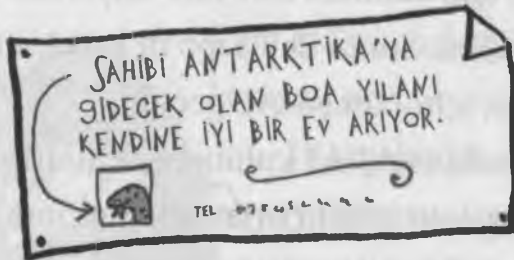 SAHİBİ ANTARKTİKA'YA
GİDECEK OLAN BOA YILANI
KENDİNE İYİ BİR EV ARIYOR.
TEL